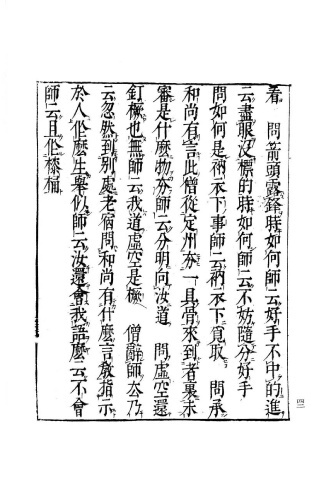 看　問箭頭露鋒時如何師云好手不中的進
云盡眼沒標的時如何師云不妨隨分好手
問如何是衲衣下事師云衲衣下覓取　問承
和尚有言此僧從定州弃一具骨來到者裏未
審是什麼物弃師云分明向汝道　問虛空還
釘橛也無師云我道虛空是橛　僧辭師去乃
云忽然到別處老宿問和尚有什麼言教指示
於人作麼生舉似師云汝還會我語麼云不會
師云且作榛
四二